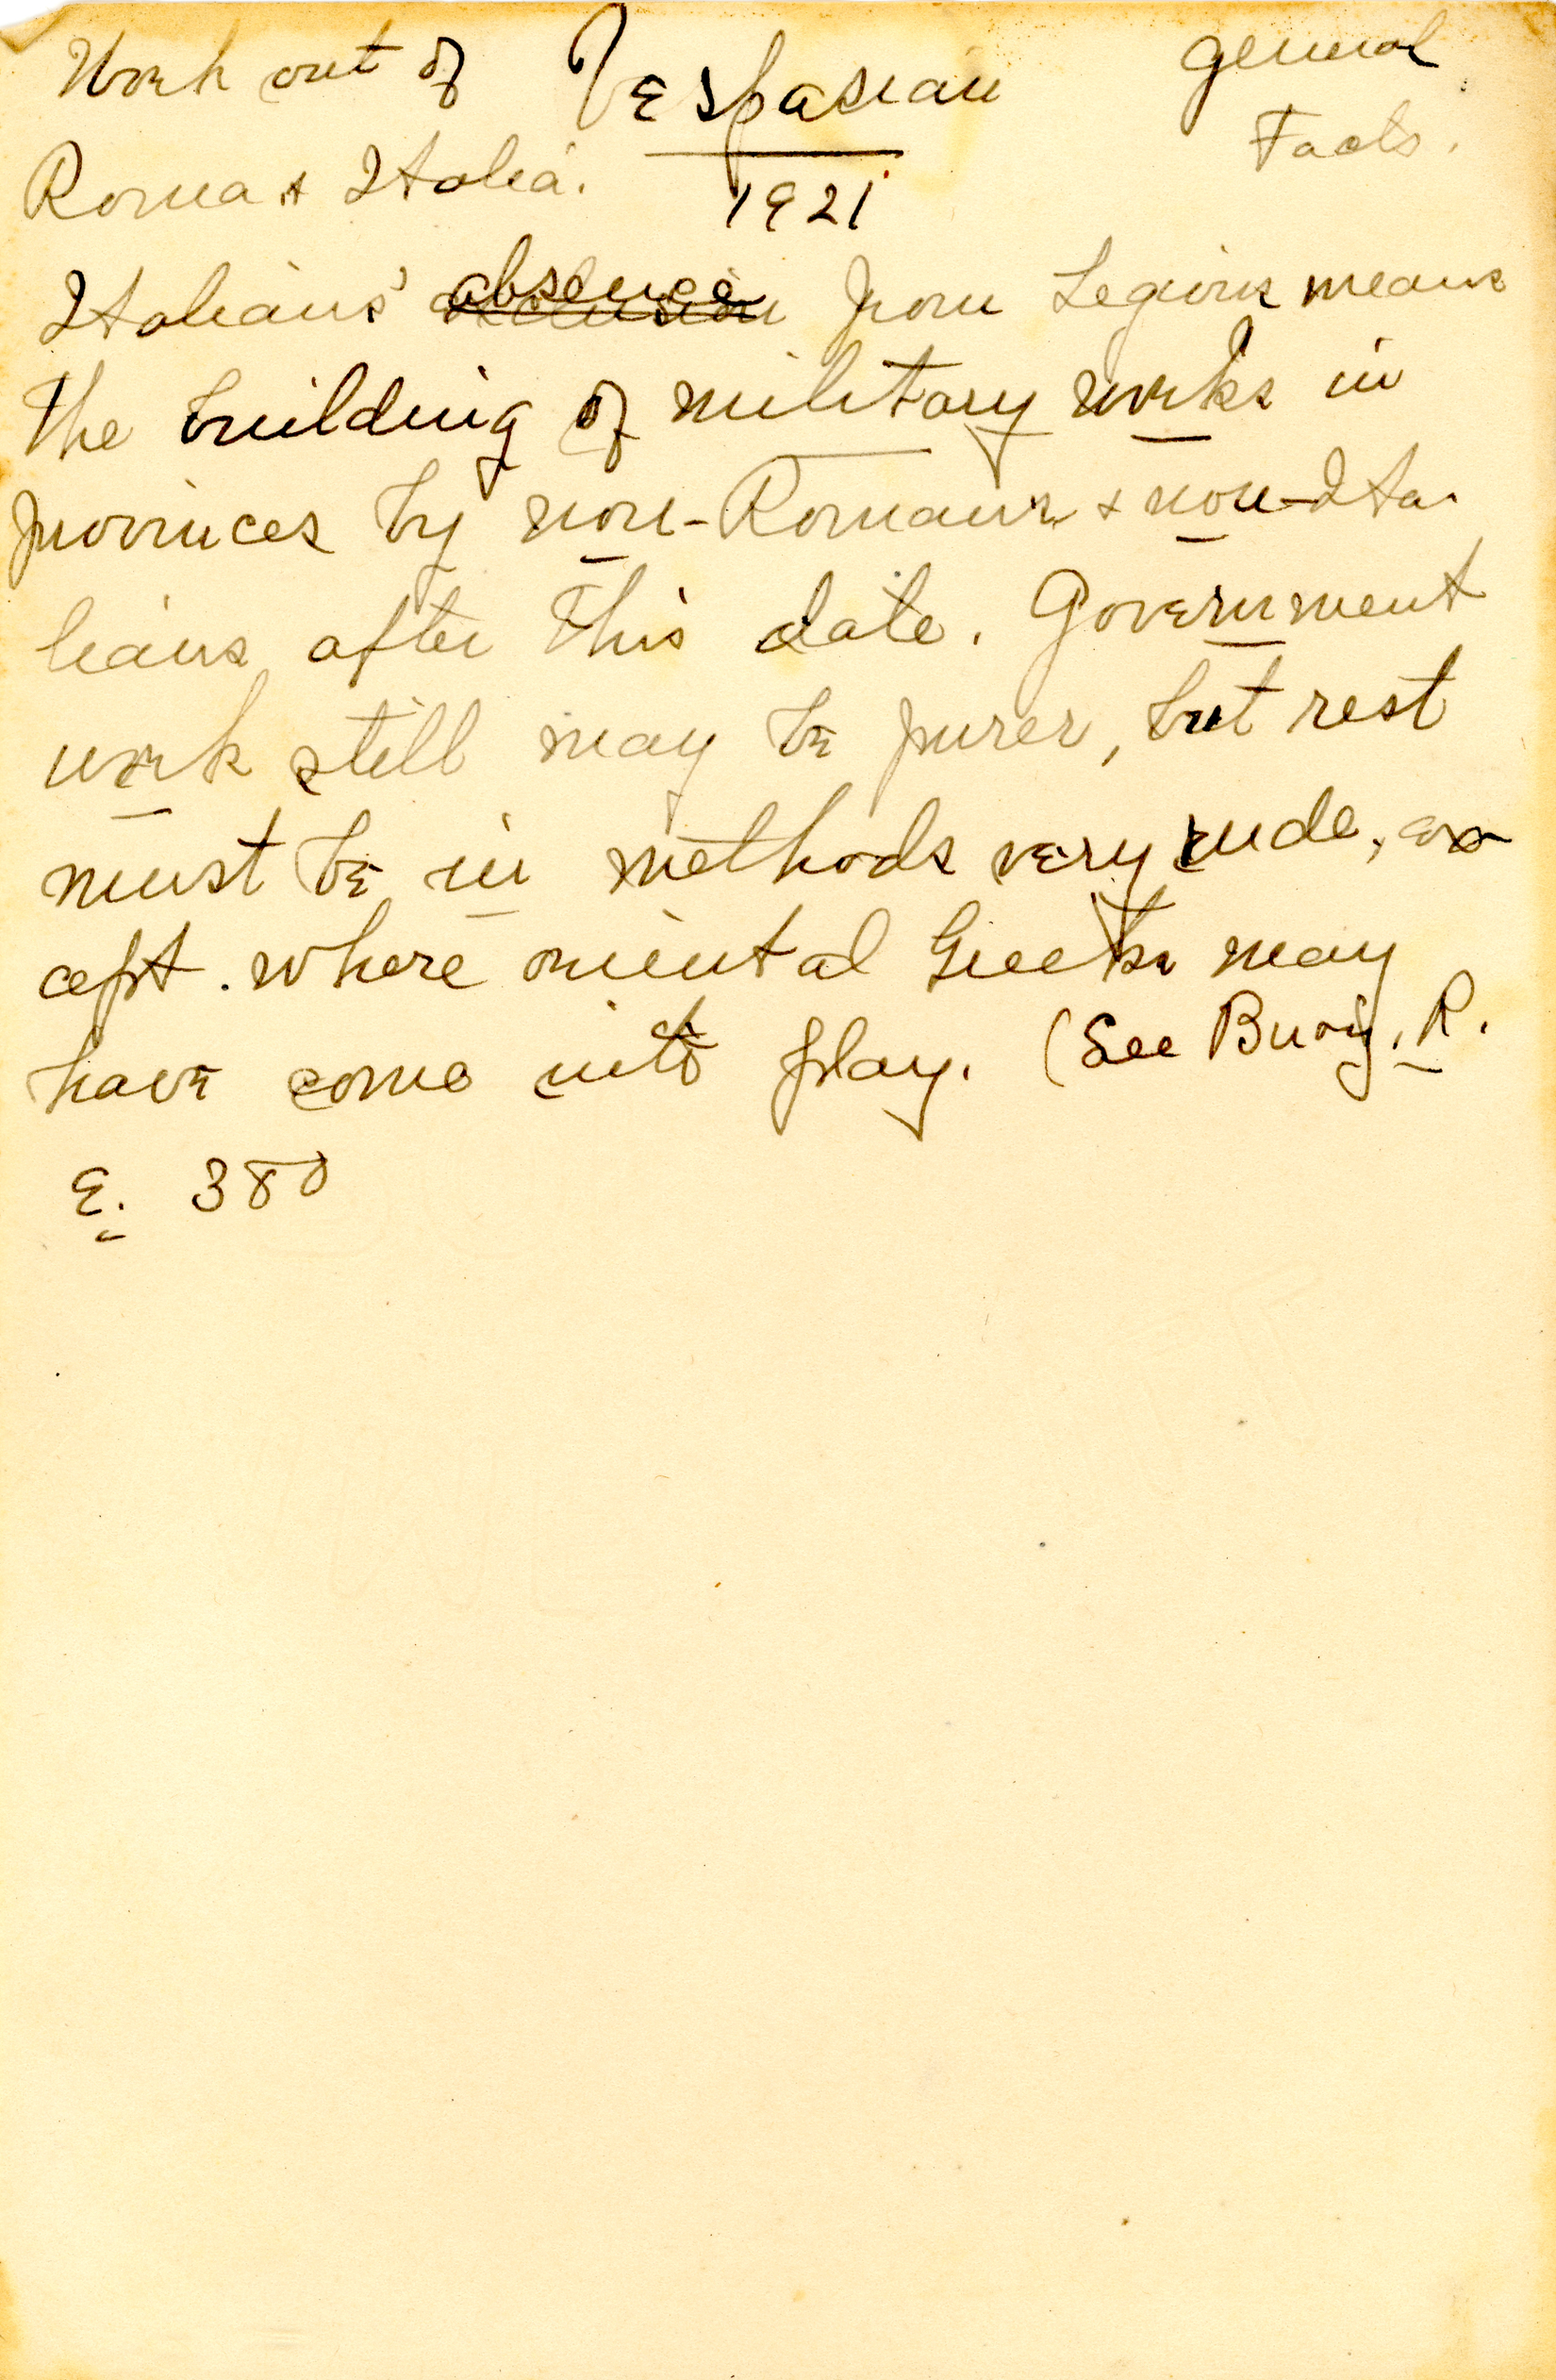 Work out of Vespasian General
Roma & Italia. 1921 Facts.
Italians' absence from Legions means
the building of military works in
provinces by non-Romans & non-Ita-
lians after this date. Government
work still may be purer, but rest
must be in methods very rude, ex-
cept where oriental Greeks may
have come into play. (See Bury, R.
E. 380